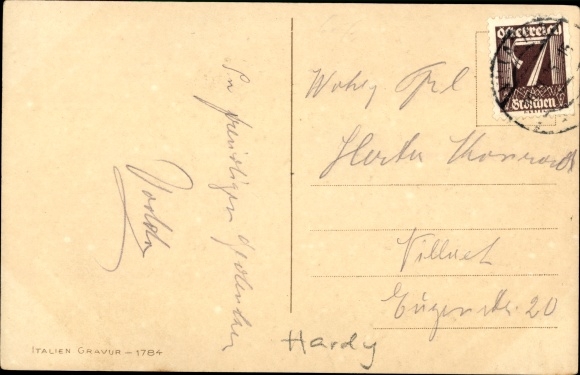 In freundlichem Gedenken
Österreich
7
Groschen
Wohlg. Frl.
Herta
Villach
Eugenstr. 20
Hardy
ITALIEN GRAVUR – 1784